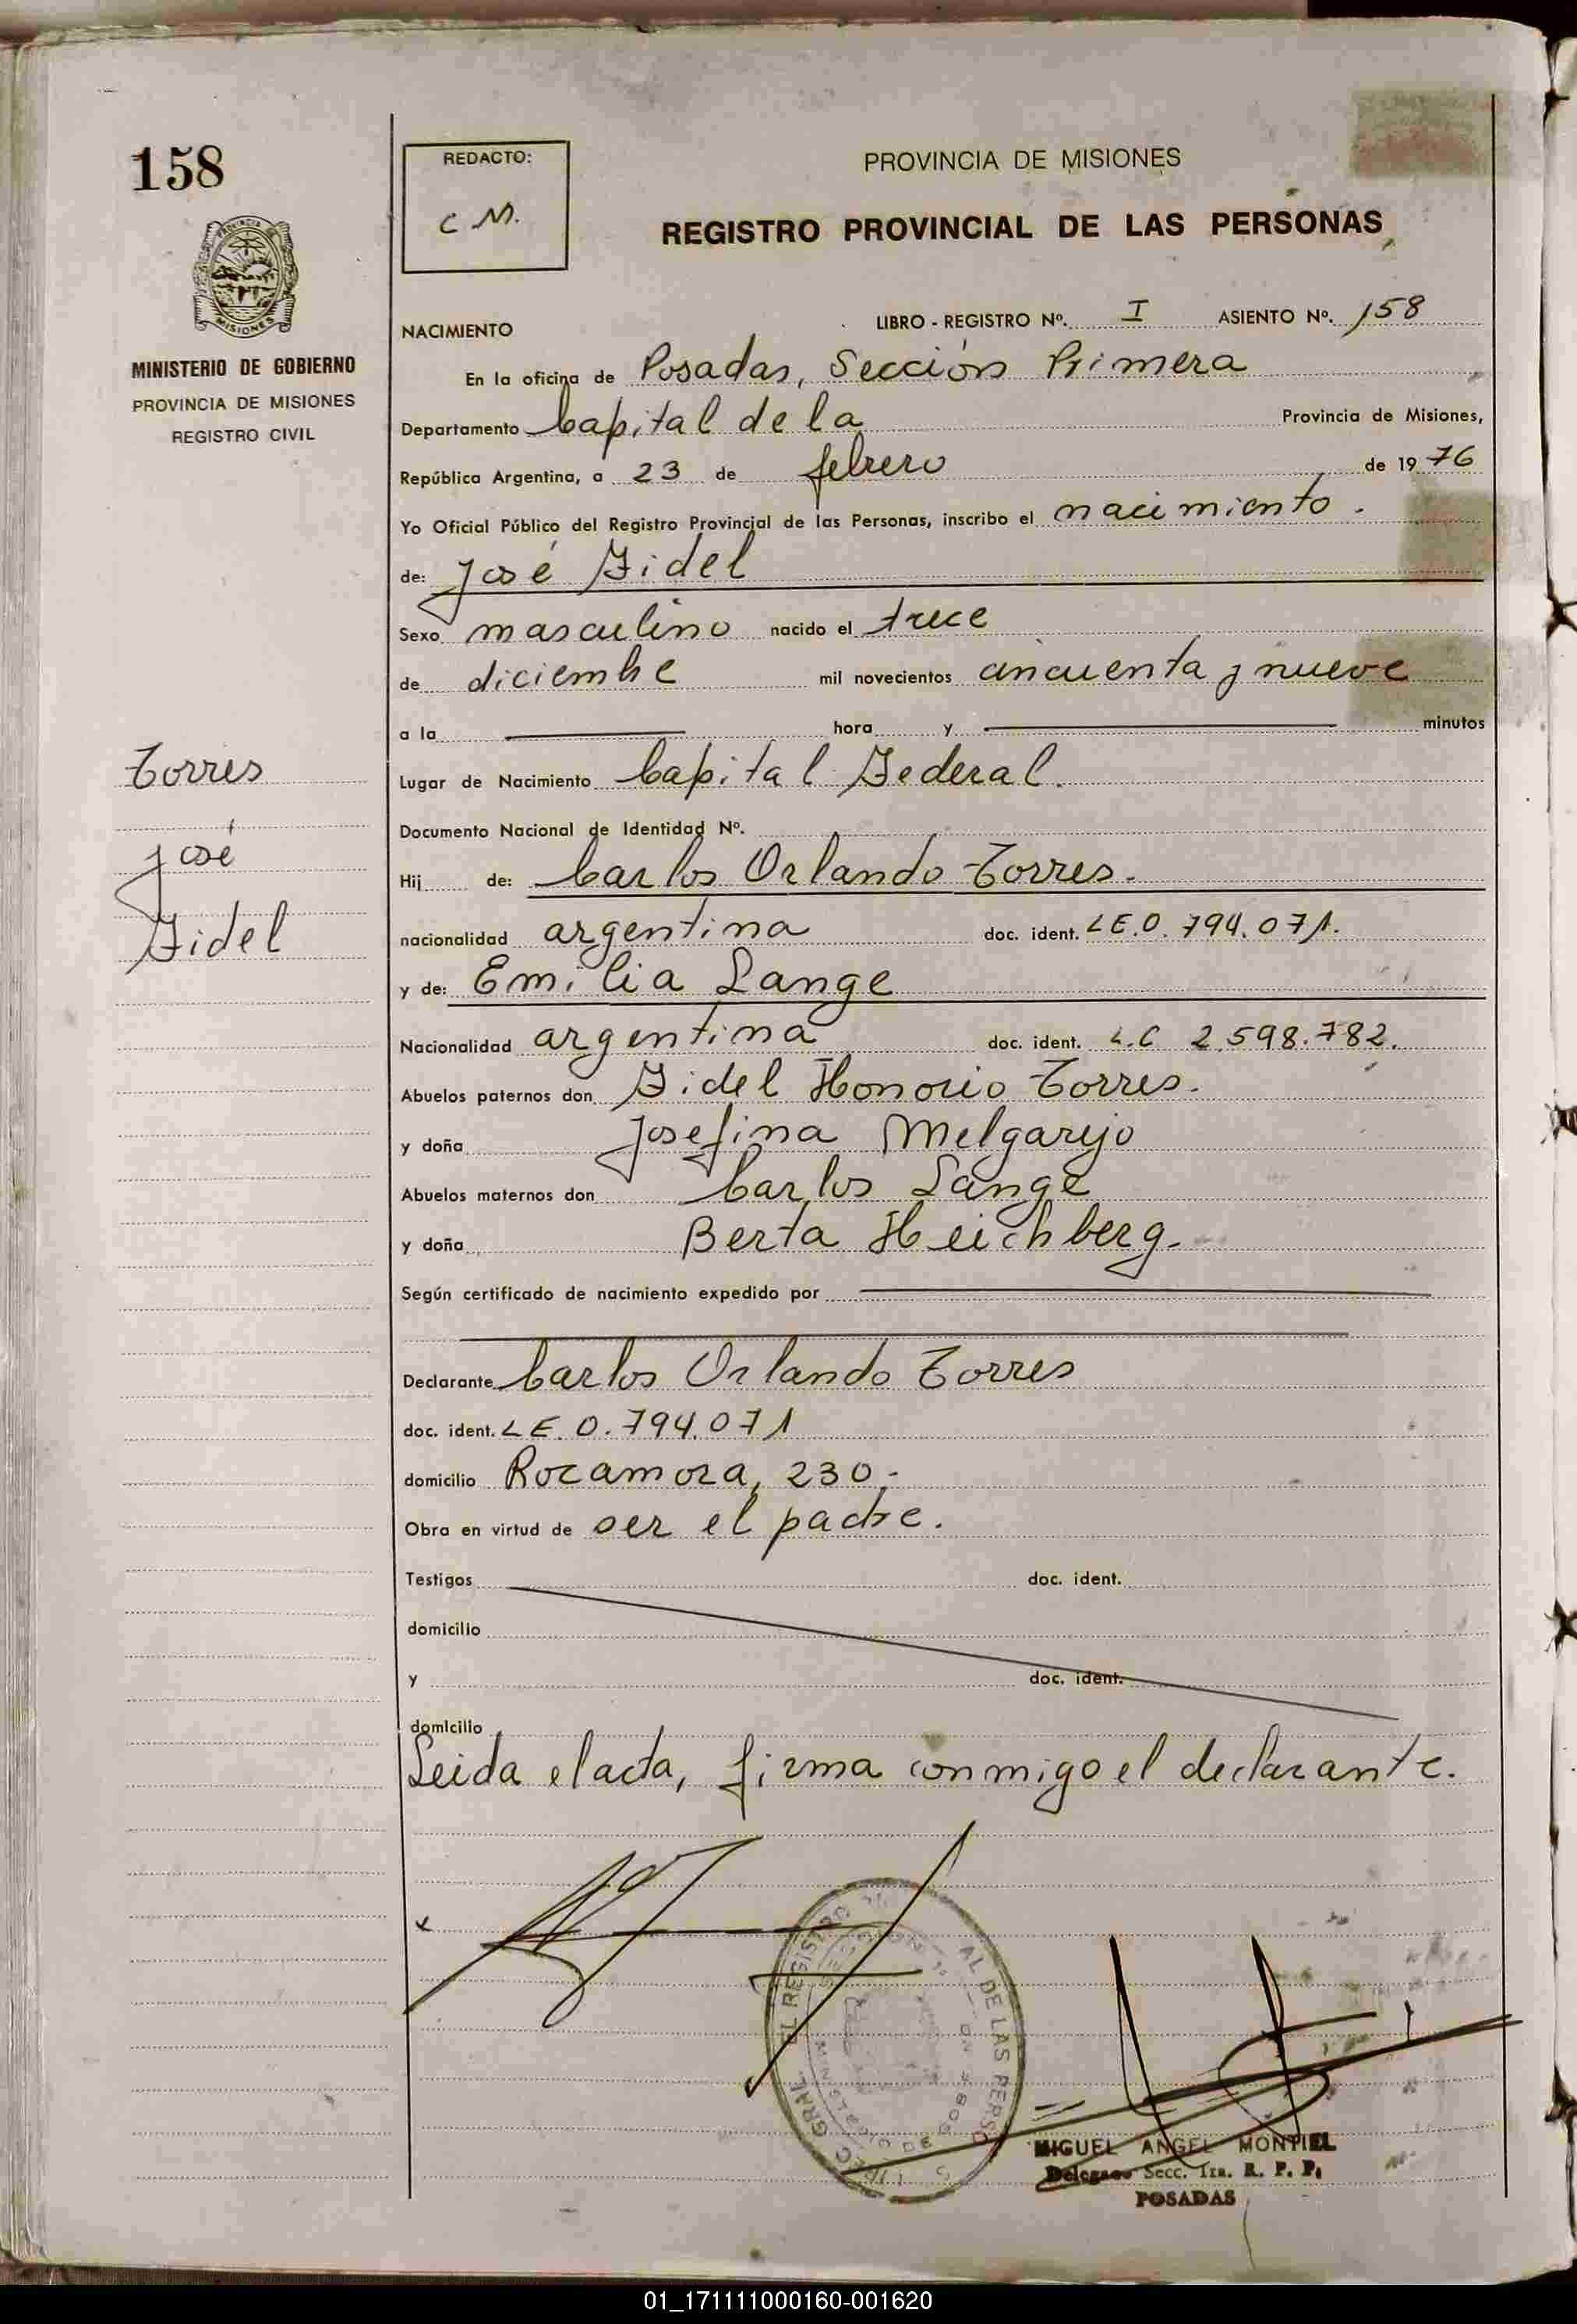 158
REDACTO:
C M.
PROVINCIA DE MISIONES
REGISTRO PROVINCIAL DE LAS PERSONAS
MISIONES
MINISTERIO DE GOBIERNO
PROVINCIA DE MISIONES
REGISTRO CIVIL
Torres
José
Fidel
NACIMIENTO
LIBRO - REGISTRO Nº. I ASIENTO Nº. 158
En la oficina de Posadas, Sección Primera
Departamento Capital de la Provincia de Misiones,
República Argentina, a 23 de febrero de 1976
Yo Oficial Público del Registro Provincial de las Personas, inscribo el nacimiento.
de: José Fidel
Sexo masculino nacido el trece
de diciembre mil novecientos cincuenta y nueve
a la hora y minutos
Lugar de Nacimiento Capital Federal.
Documento Nacional de Identidad Nº.
Hij de: Carlos Orlando Torres.
nacionalidad argentina doc. ident. LE.0.794.071.
y de: Emilia Lange
Nacionalidad argentina doc. ident. L.C 2.598.782.
Abuelos paternos don Fidel Honorio Torres.
y doña Josefina Melgarejo
Abuelos maternos don Carlos Lange
y doña Berta Heichberg.
Según certificado de nacimiento expedido por
Declarante Carlos Orlando Torres
doc. ident. LE.0.794.071
domicilio Rocamora, 230.-
Obra en virtud de ser el padre.
Testigos doc. ident.
domicilio
y doc. ident.
domicilio
Leida el acta, firma conmigo el declarante.
MIGUEL ANGEL MONTIEL
Delegado Secc. 1ra. R. P. P.
POSADAS
01_171111000160-001620